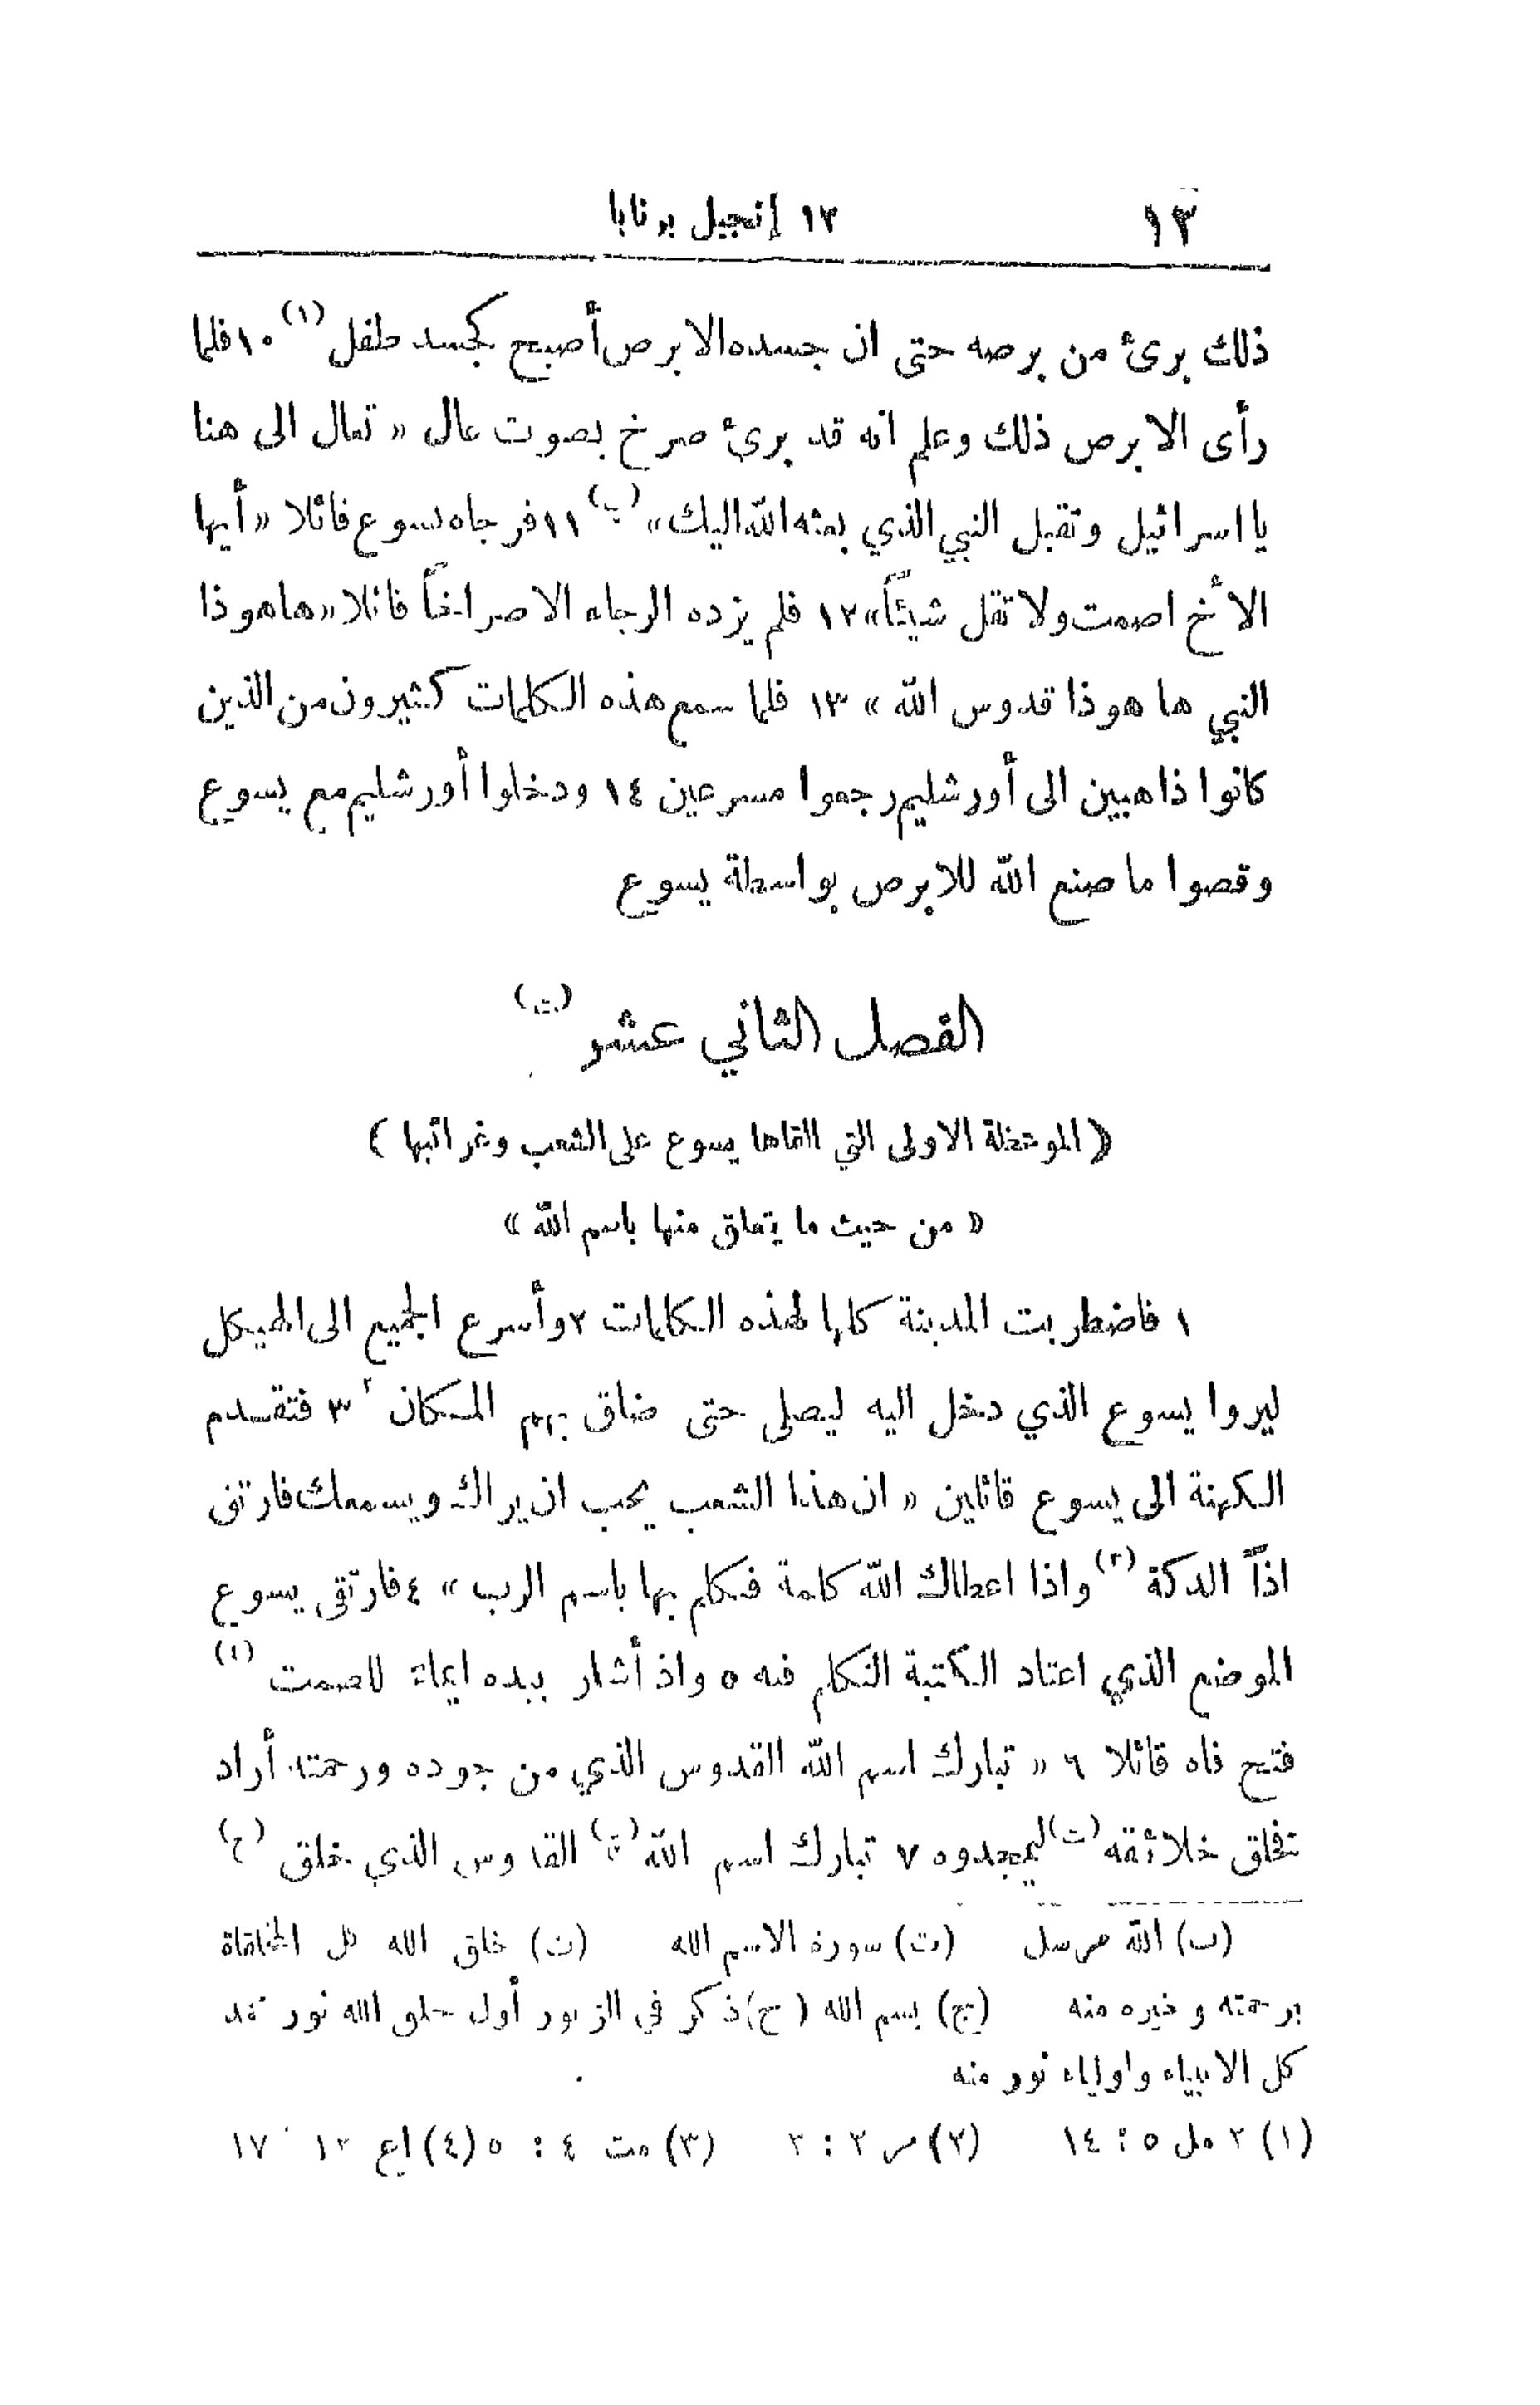 ١٣
١٢ إنجيل برنابا
ذلك برئ من برصه حتى ان جسده الابرص أصبح كجسد طفل (١) ١٠ فلما
رأى الابرص ذلك وعلم انه قد برئ صرخ بصوت عال « تعال الى هنا
يا اسرائيل وتقبل النبي الذي بعثه الله اليك » (ب) ١١ فرجاه يسوع قائلا « أيها
الأخ اصمت ولا تقل شيئاً » ١٢ فلم يزده الرجاء الا صراخاً قائلا « ها هوذا
النبي ها هوذا قدوس الله » ١٣ فلما سمع هذه الكلمات كثيرون من الذين
كانوا ذاهبين الى أورشليم رجعوا مسرعين ١٤ ودخلوا أورشليم مع يسوع
وقصوا ما صنع الله للابرص بواسطة يسوع
الفصل الثاني عشر (ت)
( الموعظة الاولى التي القاها يسوع على الشعب وغرائبها )
« من حيث ما يتعلق منها باسم الله »
١ فاضطربت المدينة كلها لهذه الكلمات ٢ وأسرع الجميع الى الهيكل
ليروا يسوع الذي دخل اليه ليصلي حتى ضاق بهم المكان ٢ ٣ فتقدم
الكهنة الى يسوع قائلين « ان هذا الشعب يحب ان يراك ويسمعك فارتق
اذاً الدكة (٣) واذا اعطاك الله كلمة فتكلم بها باسم الرب » ٤ فارتقى يسوع
الموضع الذي اعتاد الكتبة التكلم فيه ٥ واذ أشار بيده ايماء للصمت (٤)
فتح فاه قائلا ٦ « تبارك اسم الله القدوس الذي من جوده ورحمته أراد
فخلق خلائقه (ث) ليمجدوه ٧ تبارك اسم الله (ج) القدوس الذي خلق (ح)
(ب) الله مرسل (ت) سورة الاسم الله (ث) خلق الله كل المخلقاة
برحمته وخيره منه (ج) بسم الله (ح) ذكر في الزبور أول خلق الله نور
كل الانبياء واولياء نور منه
(١) ٢ مل ٥ : ١٤ (٢) مر ٢ : ٢ (٣) مت ٤ : ٥ (٤) اع ١٧